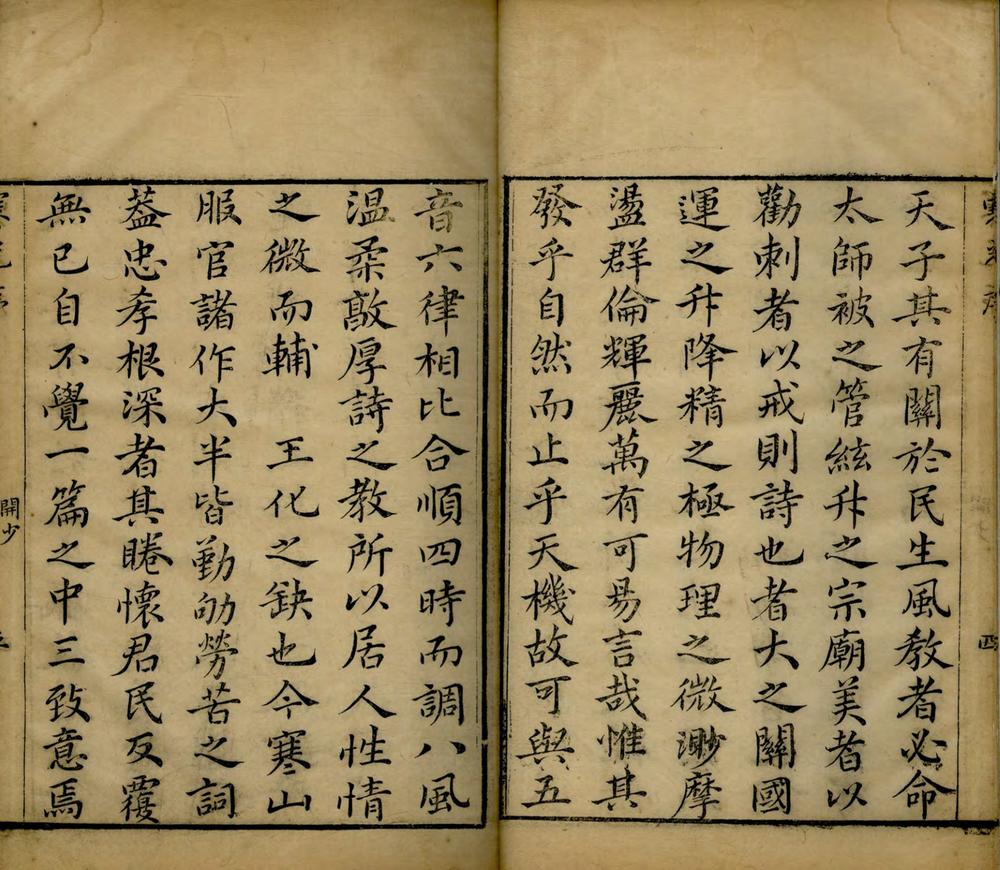 天子其有關於民生風教者必命
太師被之管絃升之宗廟美者以
勸刺者以戒則詩也者大之關國
運之升降精之極物理之微渺摩
盪群倫輝麗萬有可易言哉惟其
發乎自然而止乎天機故可與五
音六律相比合順四時而調八風
温柔敦厚詩之教所以居人性情
之微而輔　王化之缺也今寒山
服官諸作大半皆勤劬勞苦之詞
葢忠孝根深者其睠懷君民反覆
無已自不覺一篇之中三致意焉
開少